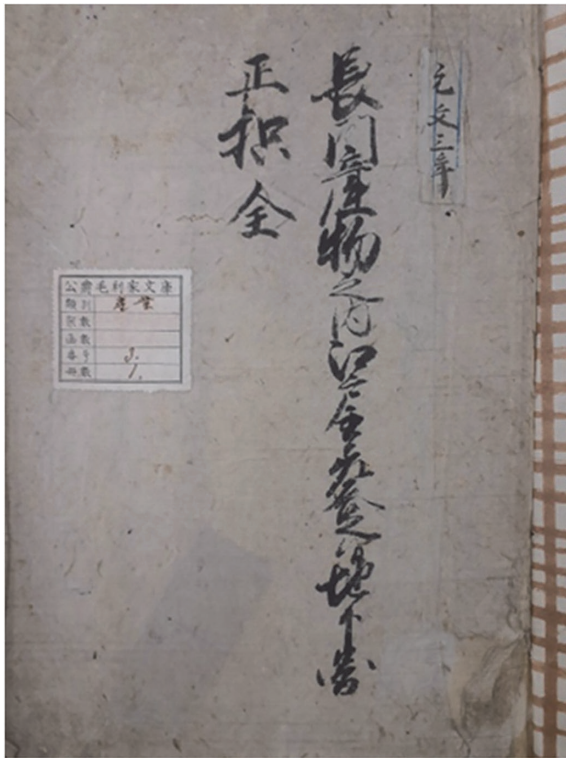 元文三年
長門産物之内江戸被差登地下図
正控 全
公爵毛利家文庫
類別 産業
架数
函数
番号 3.
冊数 1.